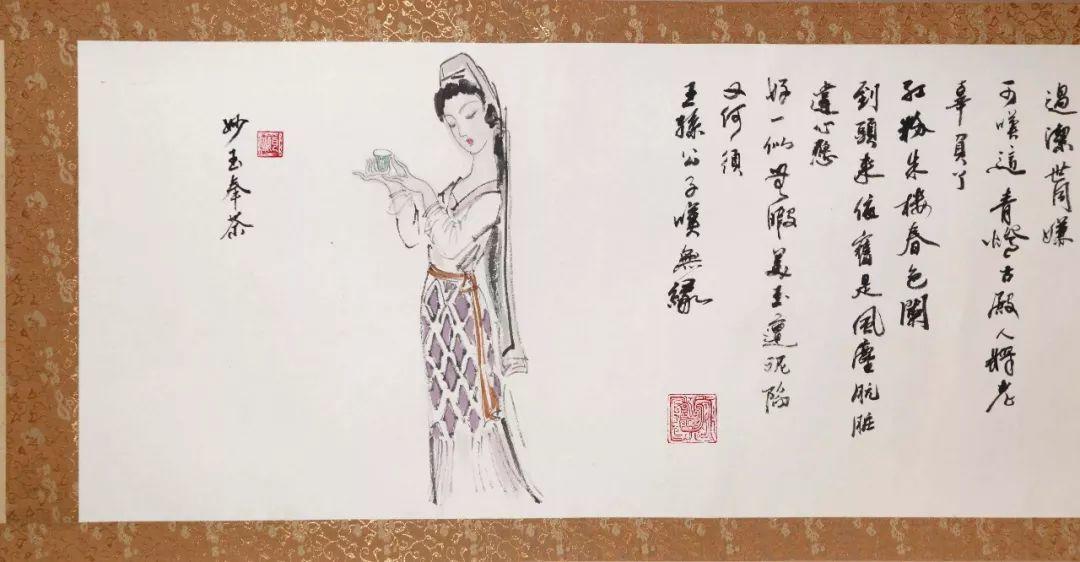 過潔世同嫌
可嘆這青燈古殿人將老
辜負了
紅粉朱樓春色闌
到頭來依舊是風塵肮脏
違心愿
好一似無瑕美玉遭泥陷
又何須
王孫公子嘆無緣
妙玉奉茶